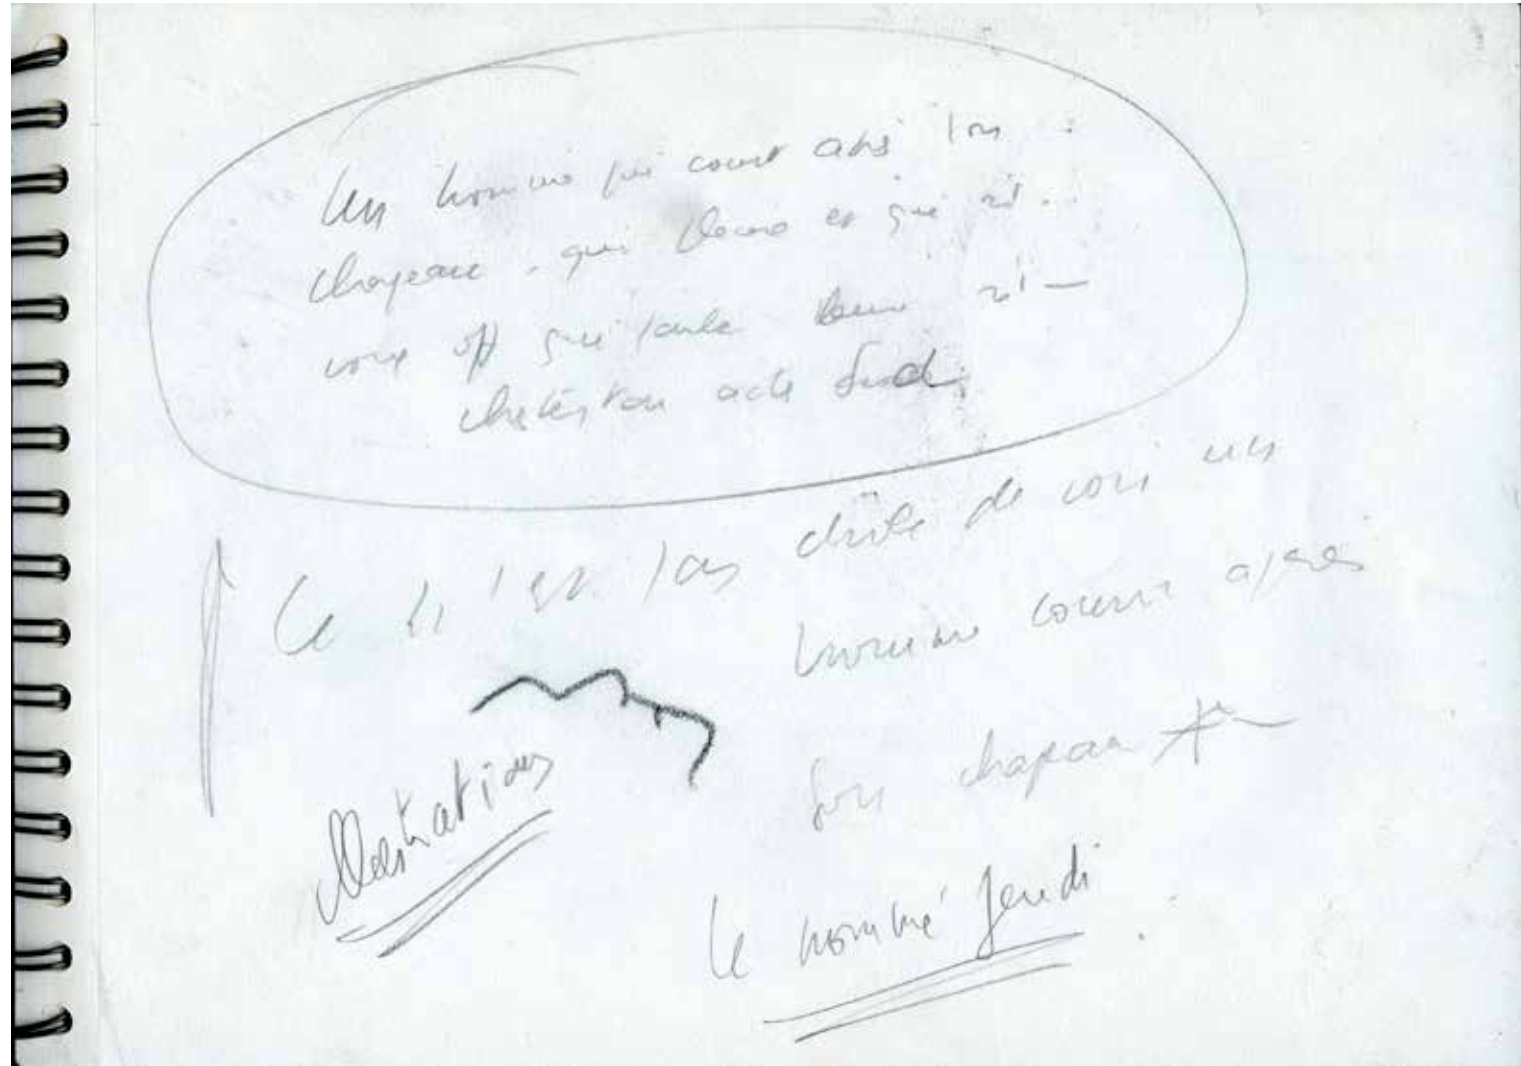 Un homme qui court après son
chapeau, qui pleure et qui rit..
voix off qui parle
Chesterton
Ce n'est pas drôle de voir un
homme courir après
son chapeau
Illustrations
Le nommé Jeudi